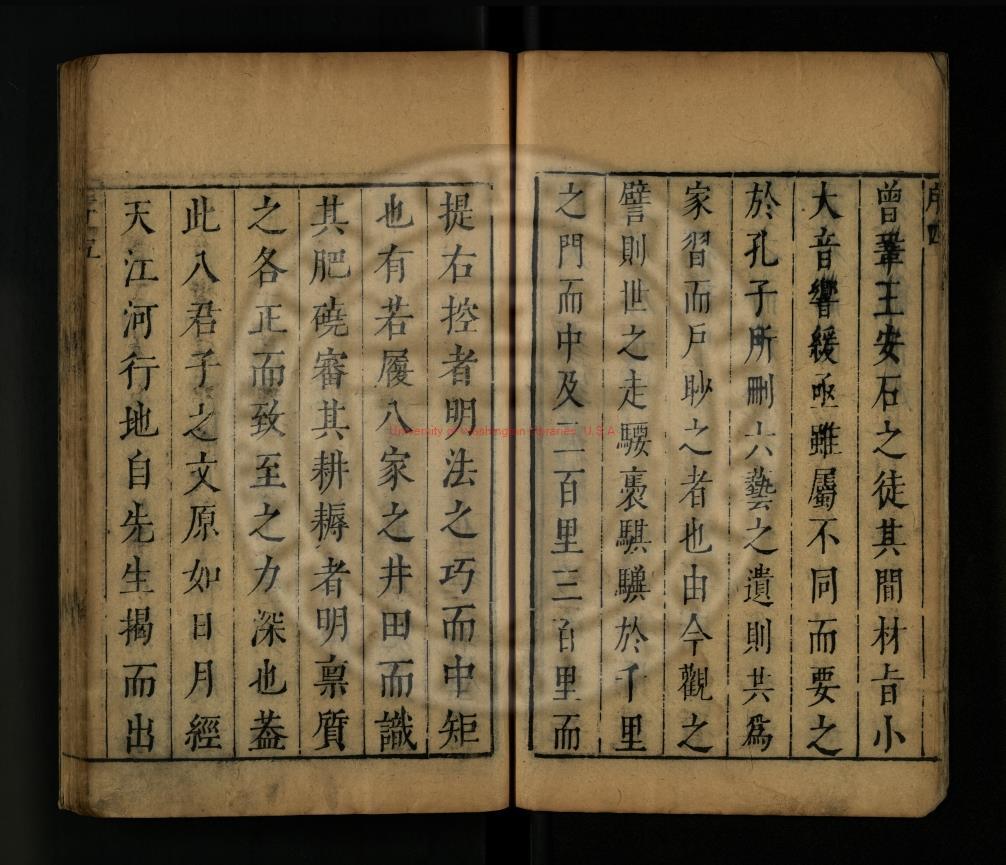 序四
曾鞏王安石之徒其間材旨小
大音響緩亟雖屬不同而要之
於孔子所刪六藝之遺則共為
家習而戶眇之者也由今觀之
譬則世之走騕褭騏驥於千里
之門而中及二百里三百里而
提右控者明法之巧而中矩
也有若履八家之井田而識
其肥磽審其耕耨者明稟質
之各正而致至之力深也葢
此八君子之文原如日月經
天江河行地自先生揭而出
五
University of Washington Libraries, U.S.A